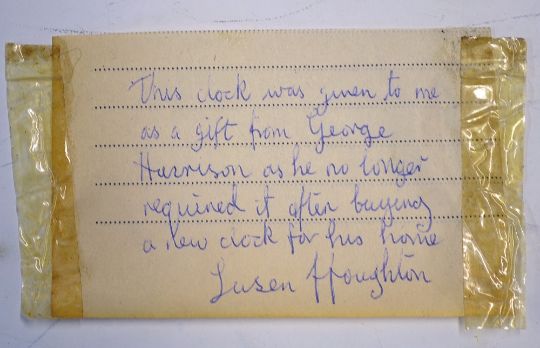 This clock was given to me
as a gift from George
Harrison as he no longer
required it after buying
a new clock for his home
Susen Houghton